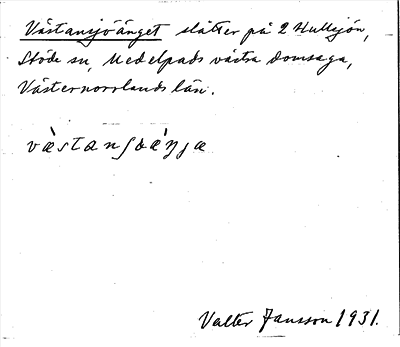 Västansjöänget slåtter på 2 Hullsjön,
Stöde sn, Medelpads västra domsaga,
Västernorrlands län.
vàstanʃöáŋja
Valter Jansson 1931.